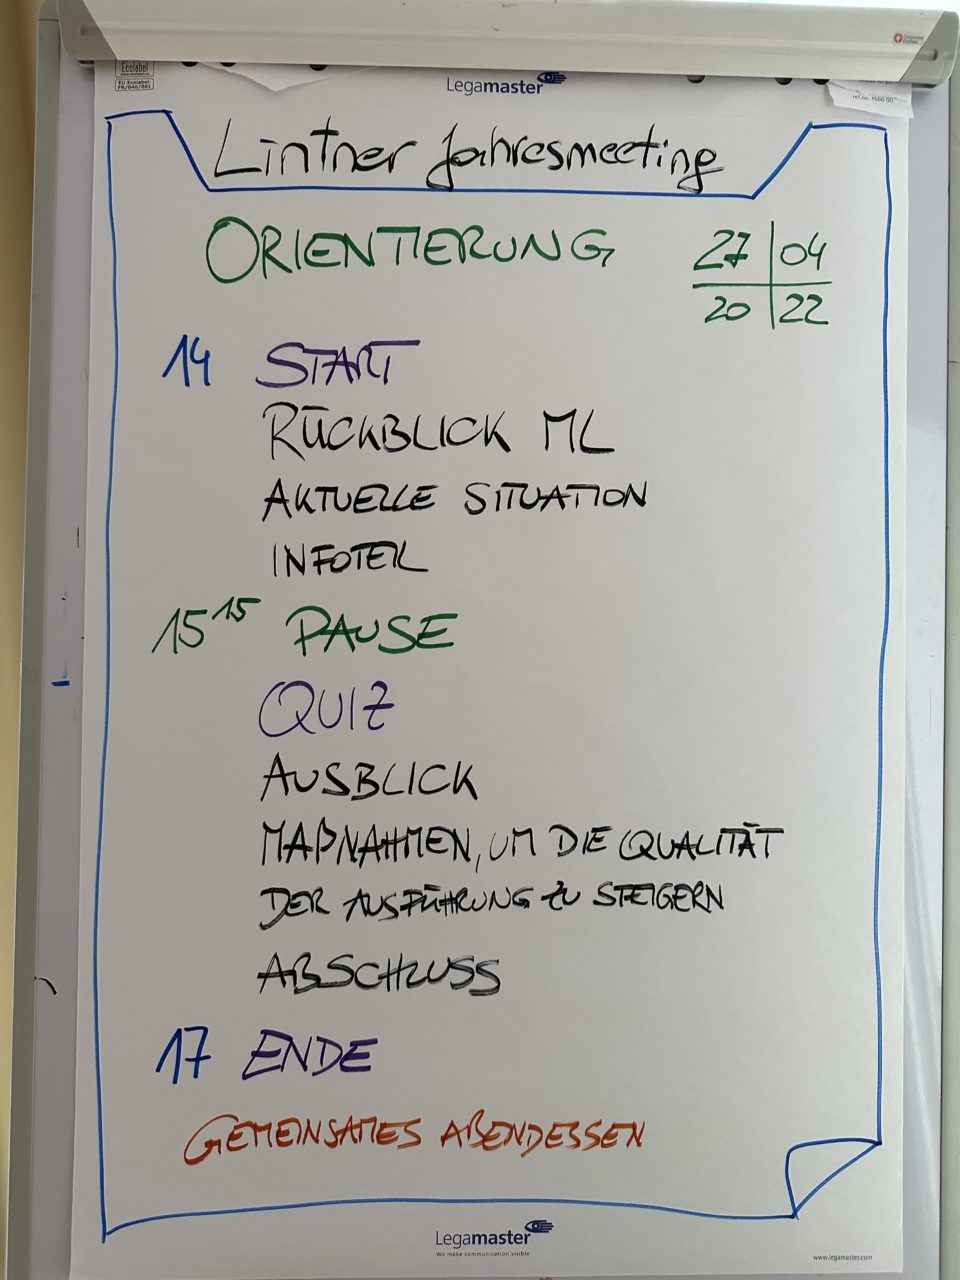 Ecolabel
EU Ecolabel:
FR/046/001
Legamaster
ref no. 1560 00
Lintner Jahresmeeting
ORIENTIERUNG
27 | 04
20 | 22
14 START
RÜCKBLICK ML
AKTUELLE SITUATION
INFOTEK
15 15 PAUSE
QUIZ
AUSBLICK
MAßNAHMEN, UM DIE QUALITÄT
DER AUSFÜHRUNG ZU STEIGERN
ABSCHLUSS
17 ENDE
GEMEINSAMES ABENDESSEN
Legamaster
We make communication visible
www.legamaster.com